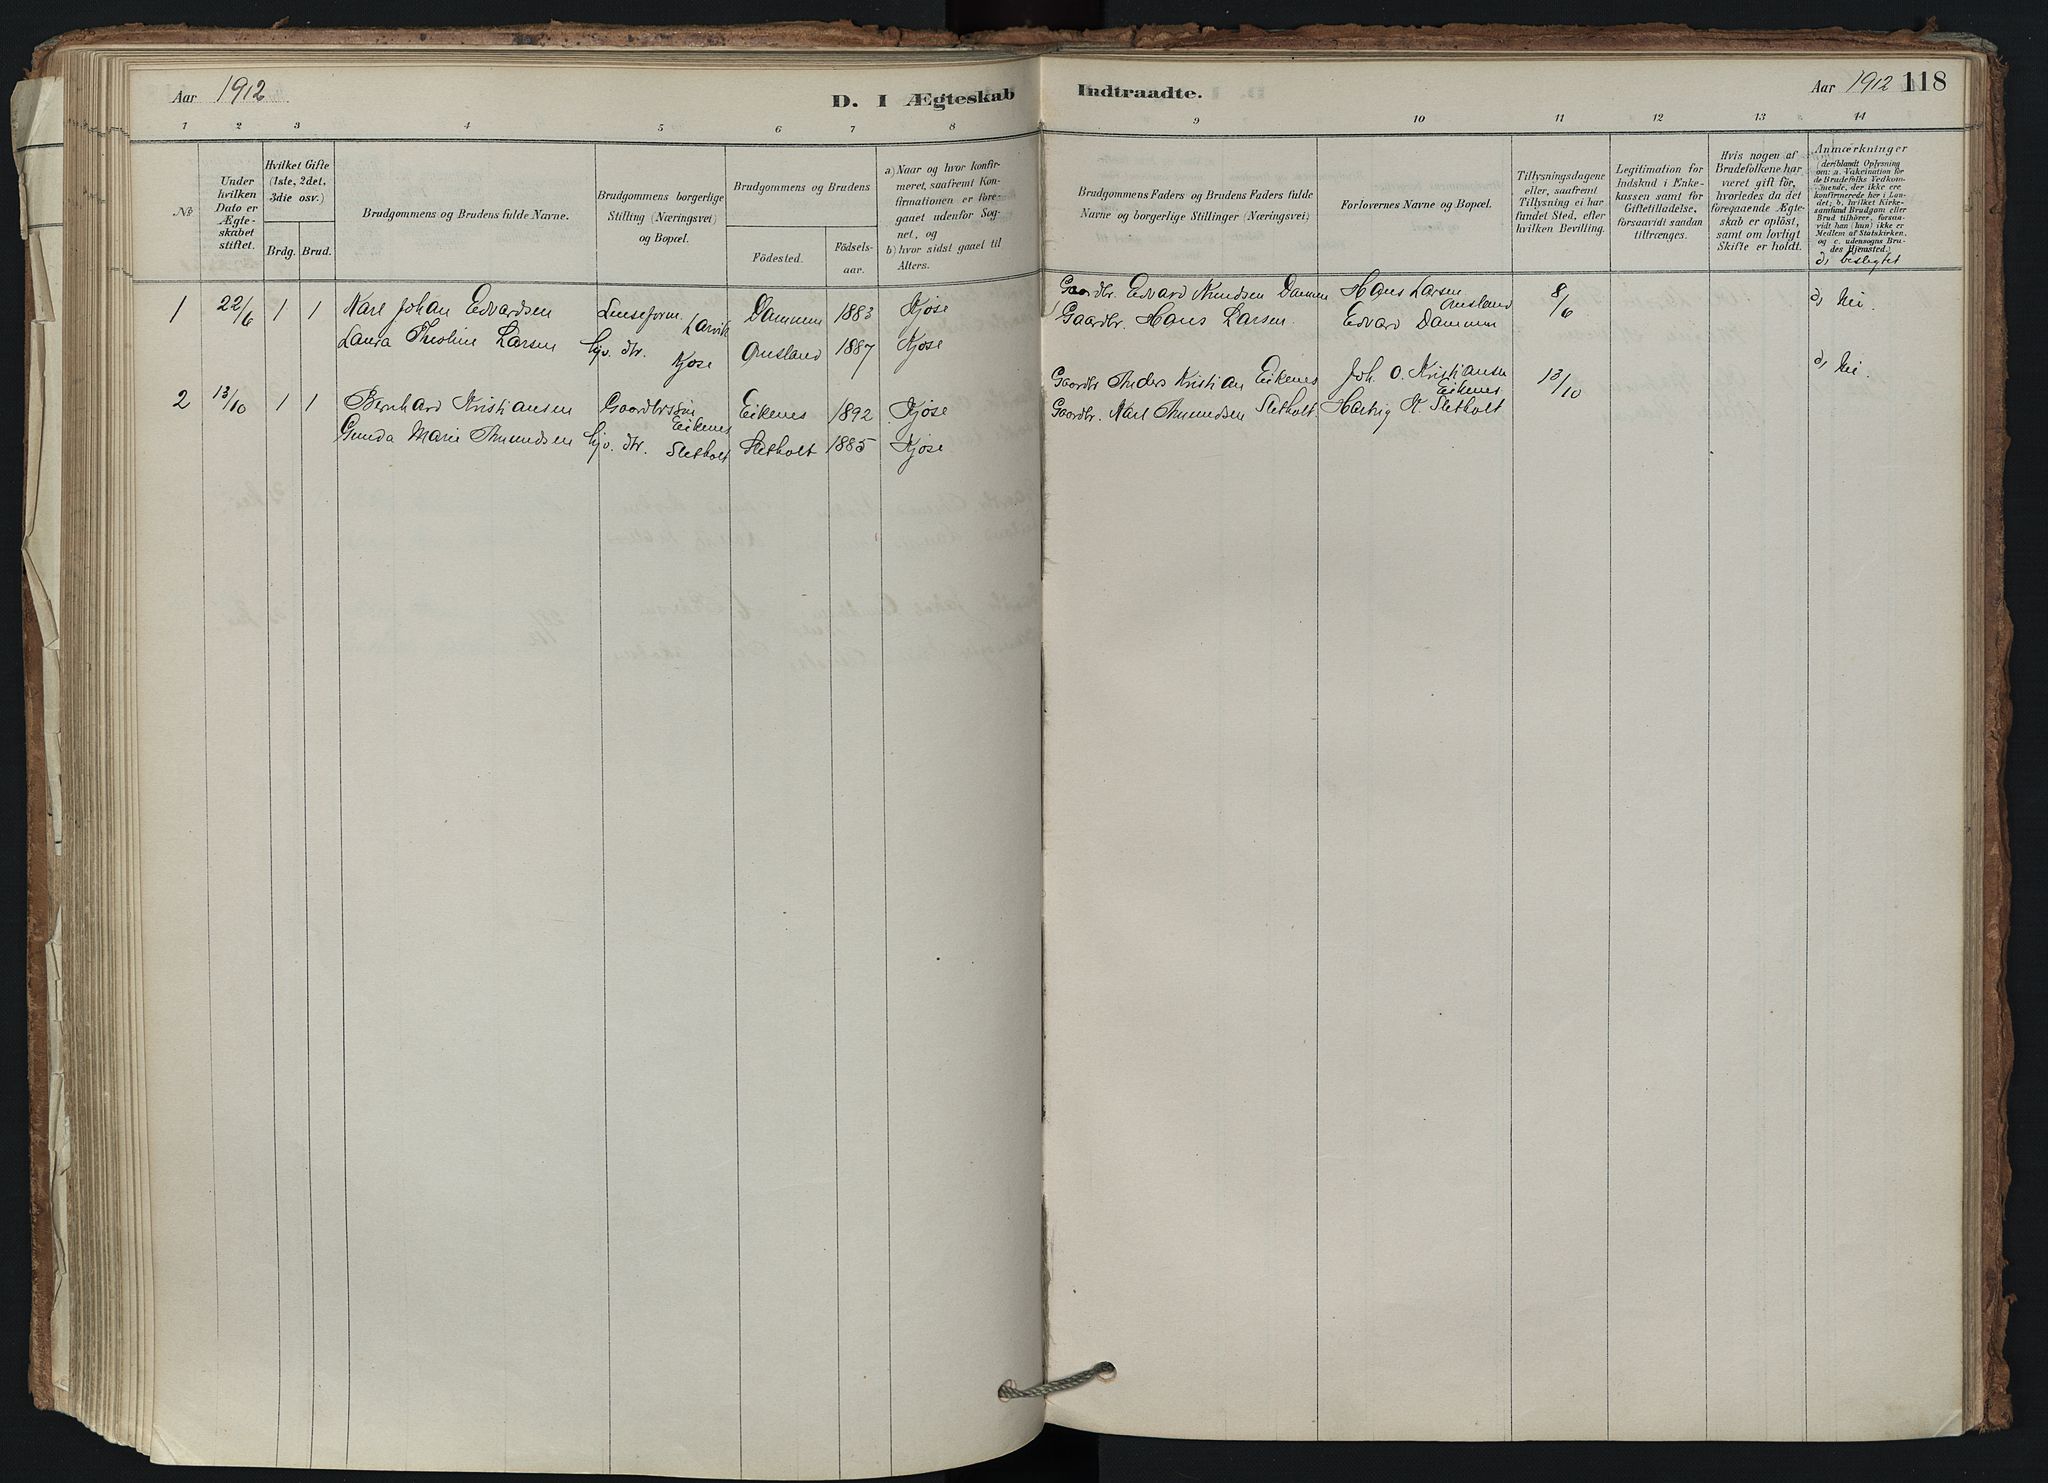 Aar 1912
D. I Ægteskab Indtraadte.
Aar 1912 118
1 2 3 4 5 6 7 8 9 10 11 12 13 14
No
Under hvilken Dato er Ægte-
skabet stiftet.
Hvilket Gifte
(1ste, 2det,
3die osv.)
Brdg. Brud.
Brudgommens og Brudens fulde Navne.
Brudgommens borgerlige
Stilling (Næringsvei)
og Bopæl.
Brudgommens og Brudens
Födested.
Födsels-
aar.
a) Naar og hvor konfir-
meret, saafremt Kon-
firmationen er fore-
gaaet udenfor Sog-
net, og
b) hvor sidst gaaet til
Alters.
Brudgommens Faders og Brudens Faders fulde
Navne og borgerlige Stillinger (Næringsvei)
Forlovernes Navne og Bopæl.
Tillysningsdagene
eller, saafremt
Tillysning ei har
fundet Sted, efter
hvilken Bevilling.
Legitimation for
Indskud i Enke-
kassen samt for
Giftetilladelse,
forsaavidt saadan
tiltrænges.
Hvis nogen af
Brudefolkene har
været gift för,
hvorledes da det
foregaaende Ægte-
skab er oplöst,
samt om lovligt
Skifte er holdt.
Anmærkninger
deriblandt Oplysning
om: a. Vakcination for
de Brudefolks Vedkom-
mende, der ikke ere
konfirmerede her i Lan-
det; b. hvilket Kirke-
samfund Brudgom eller
Brud tilhörer, forsaa-
vidt han (hun) ikke er
Medlem af Statskirken,
og c. udensogns Bru-
des Hjemsted.
d, beslegtet
1 22/6 1 1 Karl Johan Edvardsen Larvik Dammen 1883 Kjose Gaardbr. Edvard Knudsen Dammen Hans Larsen Omsland 8/6 d, Nei.
Laura Theoline Larsen hjv. dtr. Kjose Omsland 1887 Kjose Gaardbr. Hans Larsen. Edvard Dammen
2 13/10 1 1 Bernhard Kristiansen Gaardbrsøn Eikenes Eikenes 1892 Kjose Gaardbr. Anders Kristian Eikenes Joh. O. Kristiansen Eikenes 13/10 d, Nei.
Gunda Marie Amundsen hjv. dtr. Sletholt Sletholt 1885 Kjose Gaardbr. Karl Amundsen Sletholt. Hartvig K. Sletholt